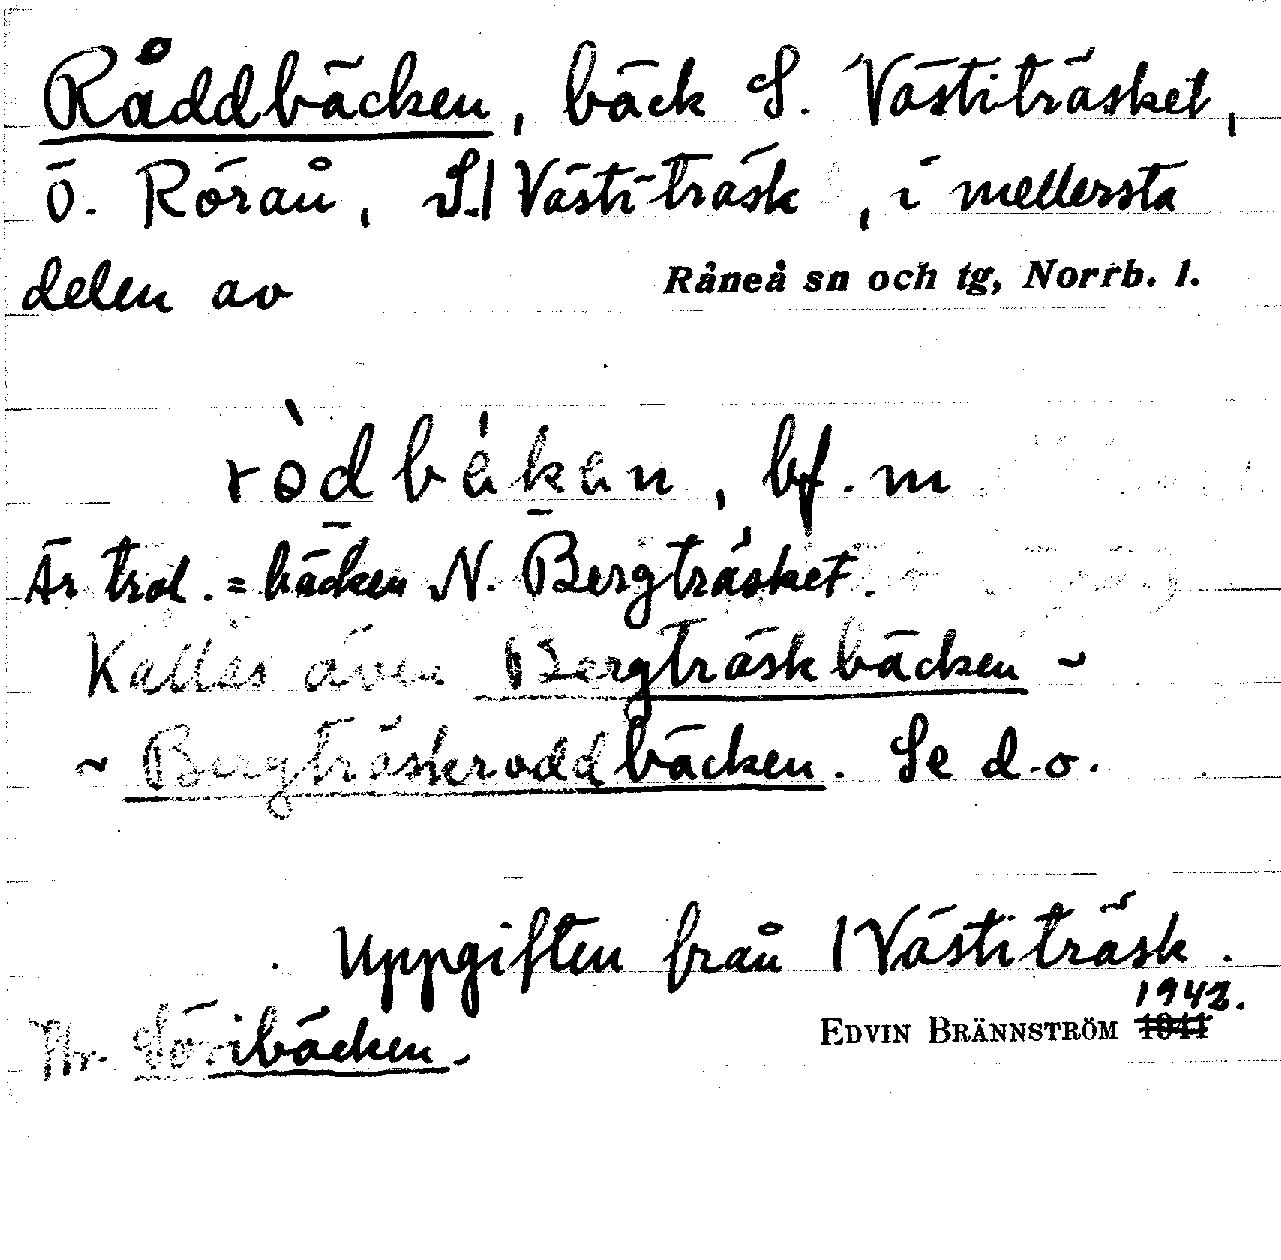 Råddbäcken, bäck S. Västiträsket,
ö. Röraån, S. Västiträsk, i mellersta
delen av Råneå sn och tg, Norrb. l.
ròdbäkan, bf. m
Är trol. = bäcken N. Bergträsket.
Kallas även Bergträskbäcken ~
~ Bergträskroddbäcken. Se d.o.
Uppgiften från Västiträsk.
Jfr. Söribäcken.
EDVIN BRÄNNSTRÖM 1941 1942.